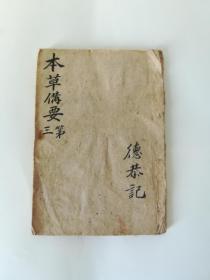 本草備要
第三
德恭記